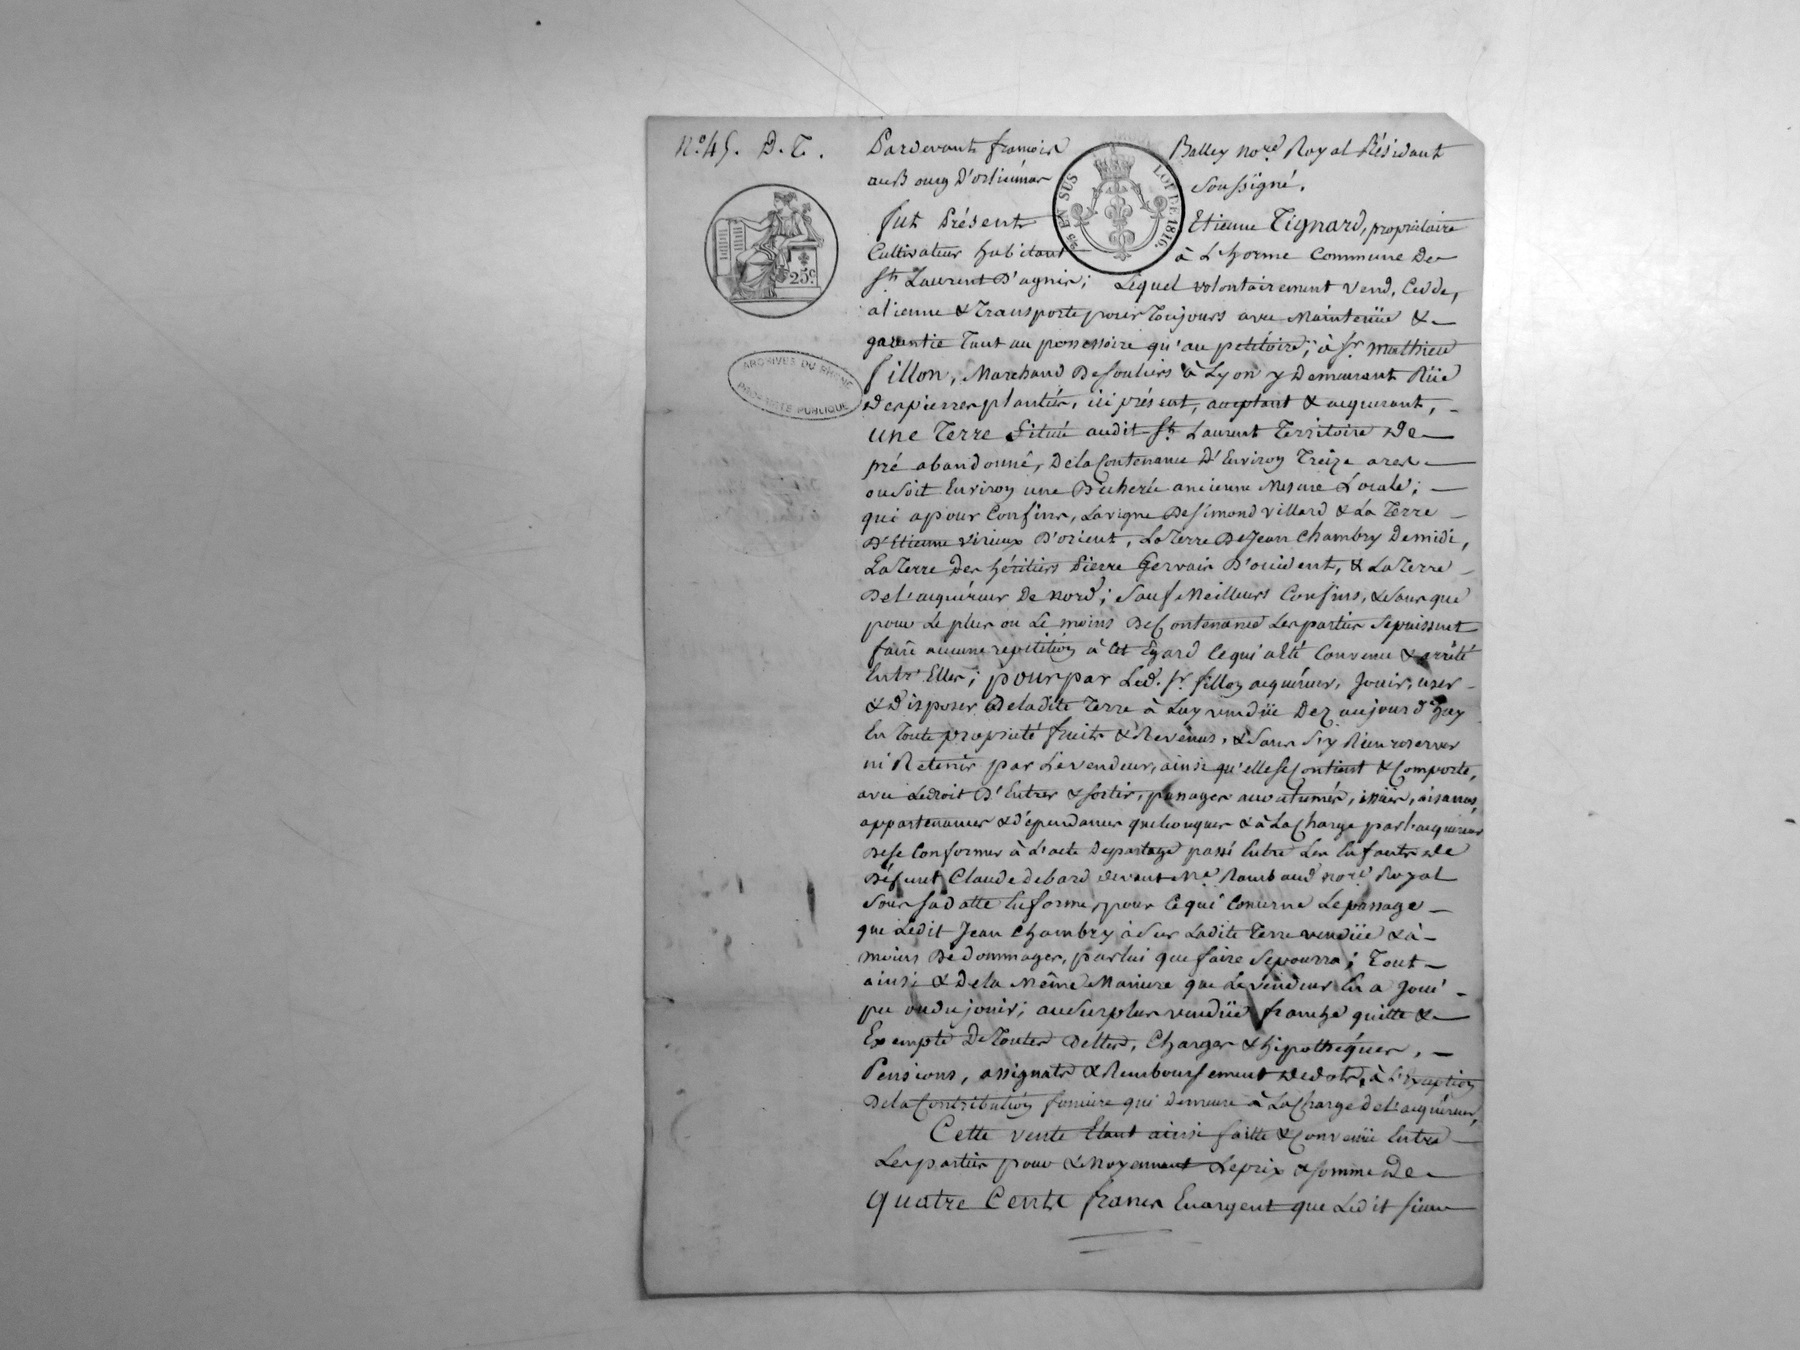 N.º 45. D. T.
25 EN SUS
LOI DE 1816.
25 c.
ARCHIVES DU RHÔNE
PROPRIÉTÉ PUBLIQUE
Pardevant françois Balley no.re Royal Résidant
au Bourg D'orliénas Soussigné.
fut Présent Etienne Tignard, propriétaire
Cultivateur habitant à L'horme Commune De
St. Laurent D'agnis; Lequel volontairement vend, Cedde,
alienne & Transporte pour Toujours avec Maintenüe &
garentie Tant au possessoire qu'au petitoire; à Sr. Mathieu
fillon, Marchand De Souliers à Lyon y Demeurant Rüe
des pierres plantés, ici présent, acceptant & acquerant,
une Terre Située audit St. Laurent Territoire De
pré abandonné, De la Contenance D'Environ Treize ares
ou Soit Environ une Bicherée ancienne Mesure Locale;
qui a pour Confins, La vigne De Simond villard & La Terre
D'Etienne virieux D'orient, La Terre De Jean Chambry De midi,
La Terre Des héritiers Pierre Gervais D'occident, & La Terre
De L'acquéreur De nord; Sauf Meilleurs Confins, & Sans que
pour Le plus ou Le moins De Contenance Les parties Se puissent
faire aucune repitition à cet Egard Ce qui a été Convenu & arrêté
Entr'Elles; pour par Led. Sr. fillon acquéreur, Jouir, user
& Disposer De la dite Terre à Luy vendüe Dez aujourd'huy
En Toute propriété fruits & Revenus, & Sans S'y Rien reserver
ni Retenir par Le vendeur, ainsi qu'elle Se Contient & Comporte,
avec Le droit D'Entrer & Sortir, passages accoutumés, issües, aisances,
appartenances & dépendances quelconques & à La Charge par L'acquéreur
De Se Conformer à L'acte De partage passé Entre Les Enfants De
Défunt Claude debard devant Me. Rambaud no.re Royal
Sous Sa datte En forme, pour Ce qui Concerne Le passage
que Ledit Jean Chambry à Sur Ladite Terre vendüe & à
moins De dommages, par lui que faire Se pourra; Tout
ainsi & De la Même Maniere que Le vendeur En a Joui
pu ou du jouir; au Surplus vendüe franche quitte &
Exempte De Toutes Dettes, Charges & hipothéques,
Pensions, assignats & Remboursement De dots, à L'Exception
De la Contribution fonciere qui Demeure à La Charge de L'acquéreur,
Cette vente Etant ainsi faitte & Convenüe Entre
Les parties pour & Moyennant Le prix & Somme De
quatre Cents francs En argent que Ledit Sieur